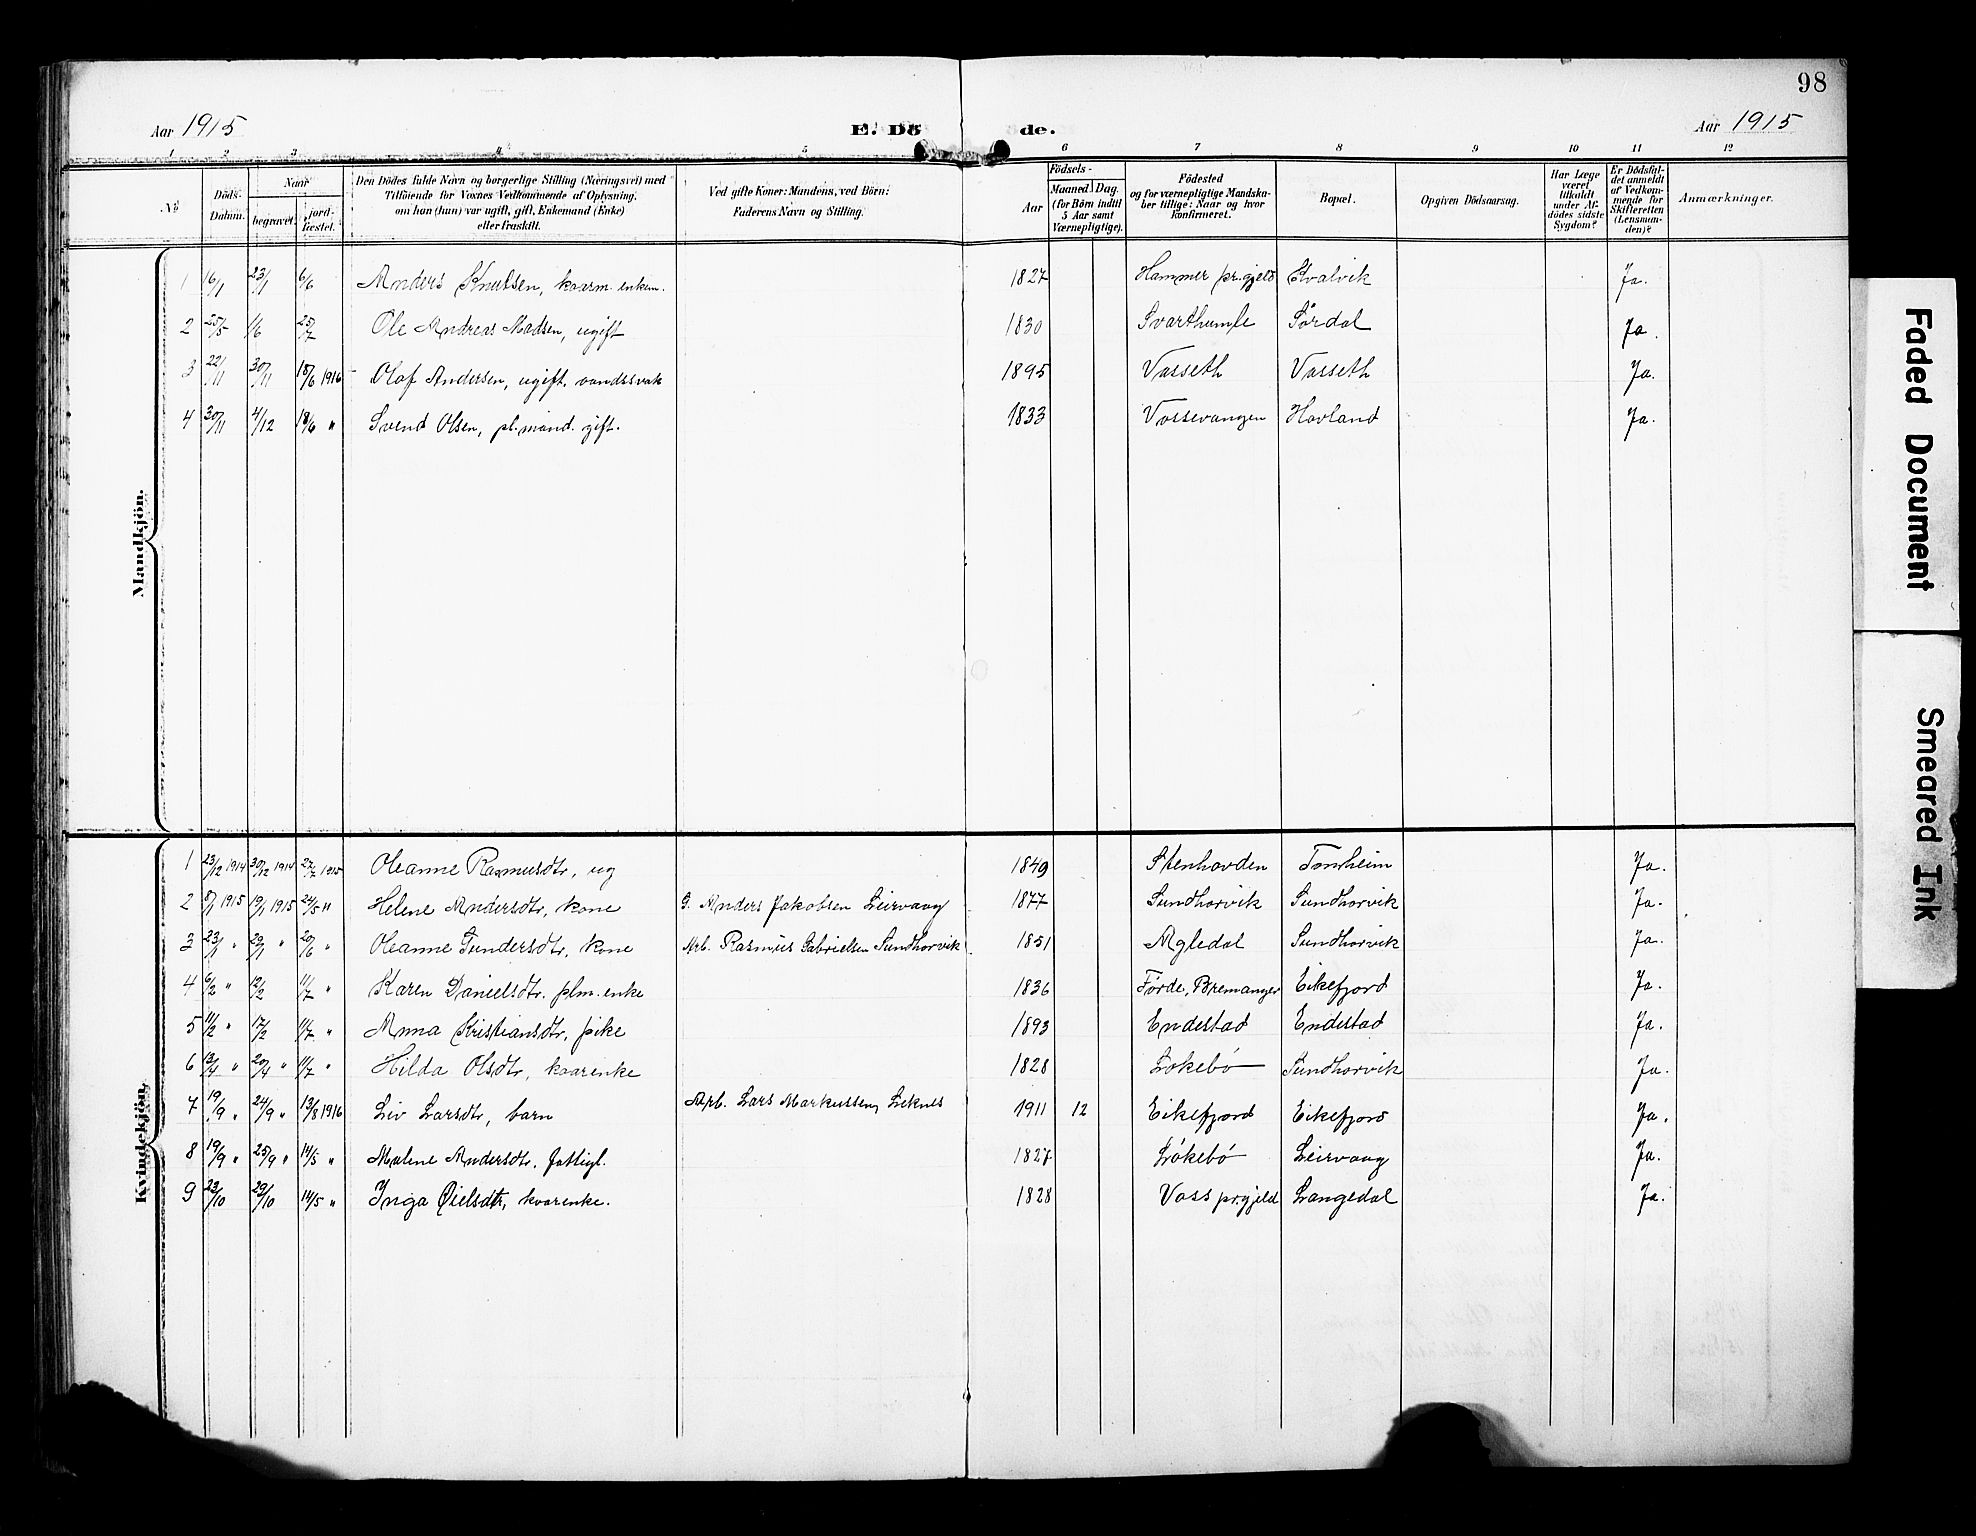 98
Aar 1915 E. Dö de. Aar 1915
1 2 3 4 5 6 7 8 9 10 11 12
No
Döds-
Datum.
Naar
begravet.
jord-
fæstet.
Den Dödes fulde Navn og borgerlige Stilling (Næringsvei) med
Tilföiende for Voxnes Vedkommende af Oplysning,
om han (hun) var ugift, gift, Enkemand (Enke)
eller fraskilt.
Ved gifte Koner: Mandens, ved Börn:
Faderens Navn og Stilling.
Födsels-
Aar
Maaned Dag.
(for Börn indtil
5 Aar samt
Værnepligtige).
Födested
og for værnepligtige Mandska-
ber tillige: Naar og hvor
konfirmeret.
Bopæl.
Opgiven Dödsaarsag.
Har Læge
været
tilkaldt
under Af-
dödes sidste
Sygdom?
Er Dödsfal-
det anmeldt
af Vedkom-
mende for
Skifteretten
(Lensman-
den)?
Anmærkninger.
Mandkjön.
1 16/1 23/1 6/6 Anders Knutsen, kaarm. enkem. 1827 Hammer pr.gjeld Kvalvik Ja.
2 25/5 1/6 25/7 Ole Andreas Madsen, ugift 1830 Svarthumle Sørdal Ja.
3 22/11 30/11 18/6 1916 Olaf Andersen, ugift, aandssvak 1895 Vasseth Vasseth Ja.
4 30/11 4/12 18/6 " Svend Olsen, pl.mand. gift. 1833 Vossevangen Hovland Ja.
Kvindekjön.
1 23/12 1914 30/12 1914 27/7 1915 Oleanne Rasmusdtr, ug 1849 Stenhovden Tonheim Ja.
2 8/1 1915 19/1 1915 24/5 " Helene Andersdtr, kone G. Anders Jakobsen Leirvaag 1877 Sundhorvik Sundhorvik Ja.
3 23/1 " 29/1 " 20/6 " Oleanne Gundersdtr, kone Arb. Rasmus Gabrielsen Sundhorvik 1851 Agledal Sundhorvik Ja.
4 6/2 " 12/2 11/7 " Karen Danielsdtr. plm. enke 1836 Førde, Bremanger Eikefjord Ja.
5 11/2 " 17/2 11/7 " Anna Kristiansdtr, pike 1893 Endestad Endestad Ja.
6 13/4 " 20/4 " 11/7 " Hilda Olsdtr, kaarenke 1828 Løkebø Sundhorvik Ja.
7 19/9 " 24/9 " 13/8 1916 Liv Larsdtr, barn Arb. Lars Markussen, Leknes 1911 12 Eikefjord Eikefjord Ja.
8 19/9 " 25/9 " 14/5 " Malene Andersdtr. fattigl. 1827 Løkebø Leirvaag Ja.
9 23/10 29/10 14/5 " Inga Øielsdtr, kaarenke. 1828 Voss pr.gjeld Langedal Ja.
Faded Document
Smeared Ink